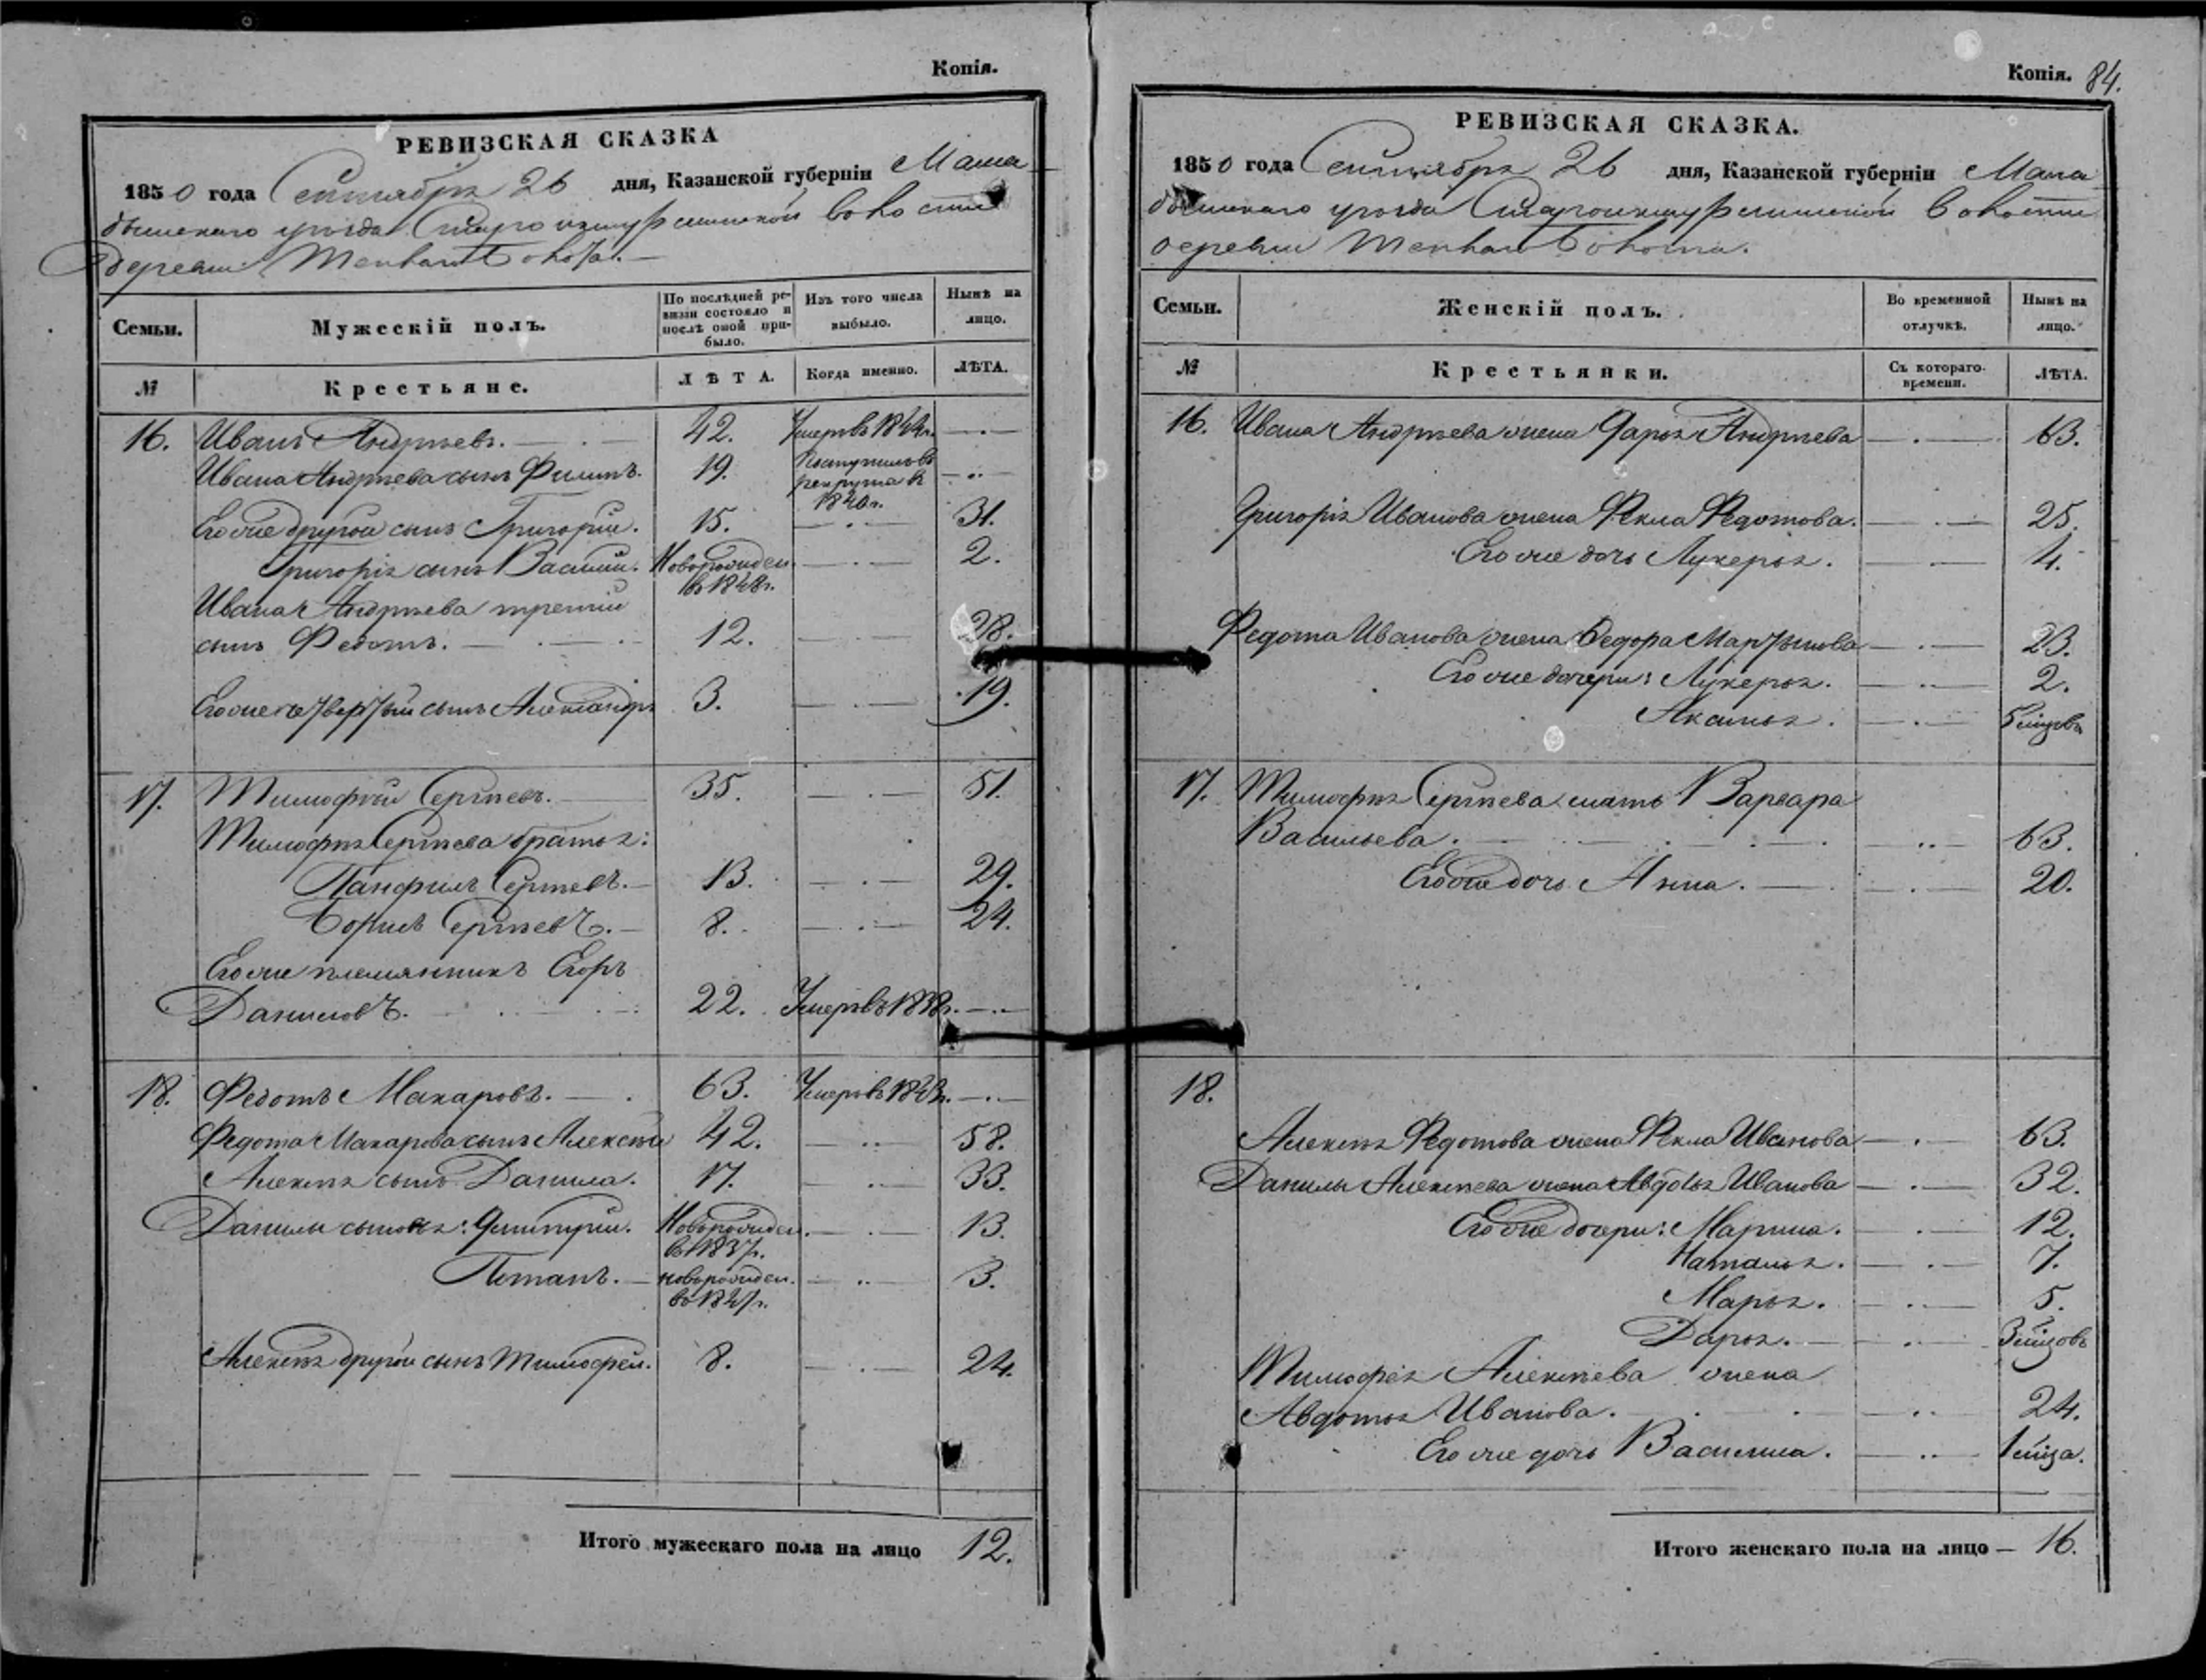 Копія.
РЕВИЗСКАЯ СКАЗКА
1850 года Сентября 26 дня, Казанской губерніи Мама
дышскаго уѣзда волости
деревни
Семьи.
Мужескій полъ.
По послѣдней ре-
визіи состояло и
послѣ оной при-
было.
Изъ того числа
выбыло.
Нынѣ на
лицо.
№
Крестьяне.
ЛѢТА.
Когда именно.
ЛѢТА.
16. Иванъ Андреевъ. 42. Умеръ въ 1844г.
Ивана Андреева сынъ Филипъ. 19. Поступилъ въ
рекрута в
1840г.
Его же другой сынъ Григорій. 15. 31.
Григорія сынъ Василій. Новорожден. 2.
въ 1848г.
Ивана Андреева третій
сынъ Федотъ. 12. 28.
Его же четвертый сынъ Александръ 3. 19.
17. Тимофѣй Сергѣевъ. 35. 51.
Тимофея Сергѣева братья:
Панфилъ Сергѣевъ. 13. 29.
Борисъ Сергѣевъ. 8. 24.
Его же племянникъ Егоръ
Даниловъ. 22. Умеръ въ 1838г.
18. Федотъ Макаровъ. 63. Умеръ въ 1843г.
Федота Макарова сынъ Алексѣй 42. 58.
Алексѣя сынъ Данила. 17. 33.
Данилы сыновья: Дмитрій. Новорожден. 13.
въ 1837г.
Потапъ. новорожден. 3.
въ 1847г.
Алексѣя другой сынъ Тимофей. 8. 24.
Итого мужескаго пола на лицо 12.
Копія. 84.
РЕВИЗСКАЯ СКАЗКА.
1850 года Сентября 26 дня, Казанской губерніи Мама
дышскаго уѣзда волости
деревни
Семьи.
Женскій полъ.
Во временной
отлучкѣ.
Нынѣ на
лицо.
№
Крестьянки.
Съ котораго
времени.
ЛѢТА.
16. Ивана Андреева жена Дарья Андреева 63.
Григорія Иванова жена Фекла Федотова. 25.
Его же дочь Лукерья. 4.
Федота Иванова жена Федора Мартынова 23.
Его же дочери: Лукерья. 2.
Аксинья. 5 мѣсцовъ
17. Тимофея Сергѣева мать Варвара
Васильева. 63.
Его же дочь Анна. 20.
18.
Алексѣя Федотова жена Фекла Иванова 63.
Данилы Алексѣева жена Авдотья Иванова 32.
Его же дочери: Марина. 12.
Наталья. 7.
Марья. 5.
Дарья. 3 мѣсцовъ
Тимофея Алексѣева жена
Авдотья Иванова. 24.
Его же дочь Василиса. 1 мѣсца.
Итого женскаго пола на лицо — 16.